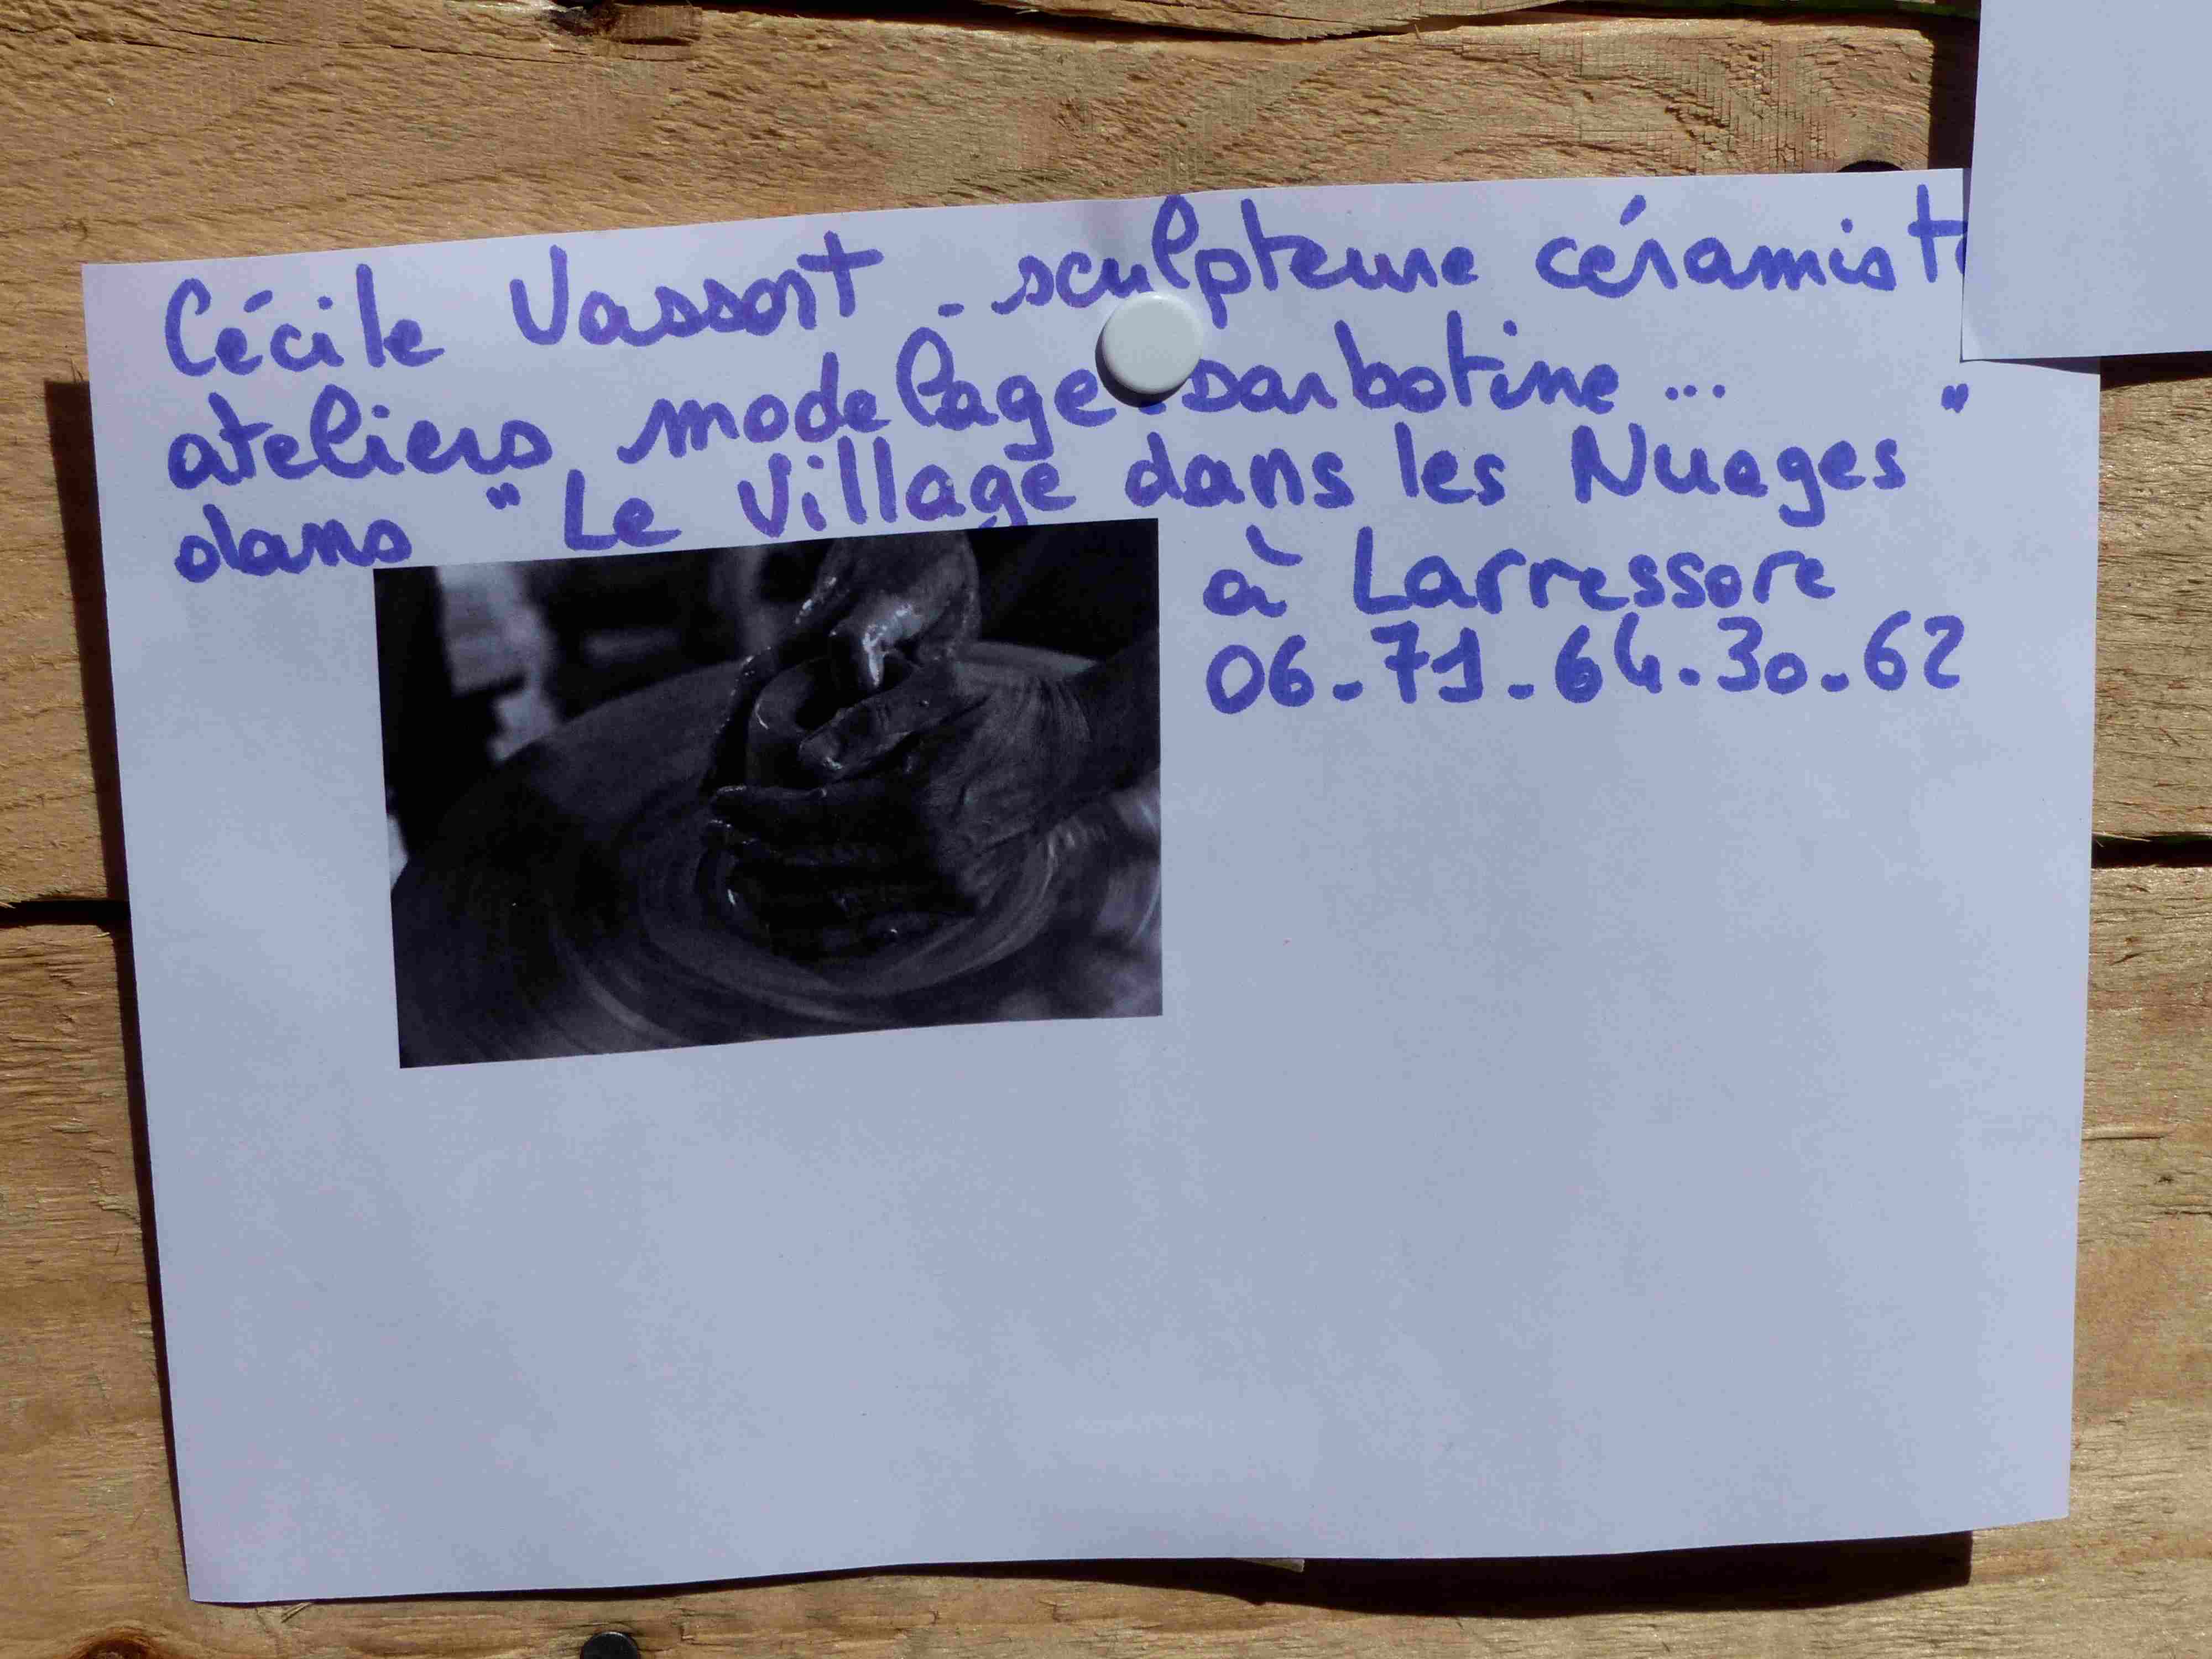 Cécile Vassort - sculpteure céramiste
ateliers modelage - barbotine ...
dans "Le Village dans les Nuages"
à Larressore
06-71-64-30-62